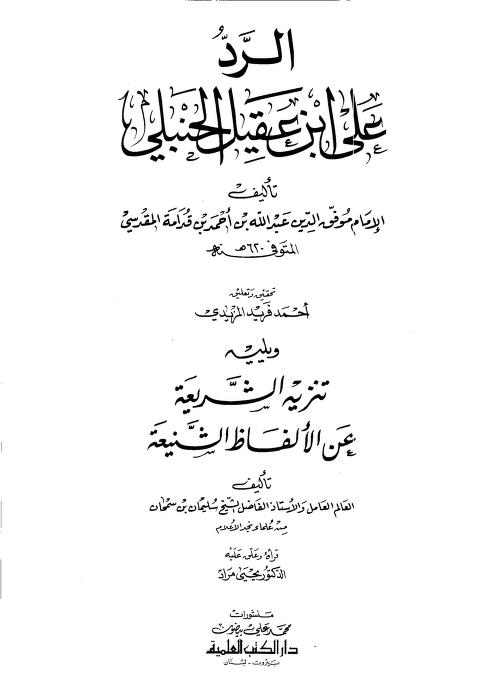 الرَّدُّ
عَلَى ابْنِ عَقِيلٍ الحَنْبَلِيّ
تأليف
الإمَام مُوفّق الدِّين عَبْد اللّه بْن أَحْمَد بْن قُدَامَة المَقْدِسِيّ
المتَوفىٰ سنة ٦٢٠هـ
تحقيق وتعليق
أحمَد فَريد المزيدي
وَيليه
تنزيه الشَّريعَة
عَن الألفَاظ الشَّنيعَة
تأليف
العَالم العَامل وَالأستاذ الفَاضل الشيّخ سُليمَان بن سَحمَان
من عُلمَاء نجد الأعلام
قرأهُ وَعَلّق عَليه
الدكتور يحيَىٰ مرَاد
منشورات
محمّد علي بيضون
دار الكتب العلمية
بيروت - لبنان